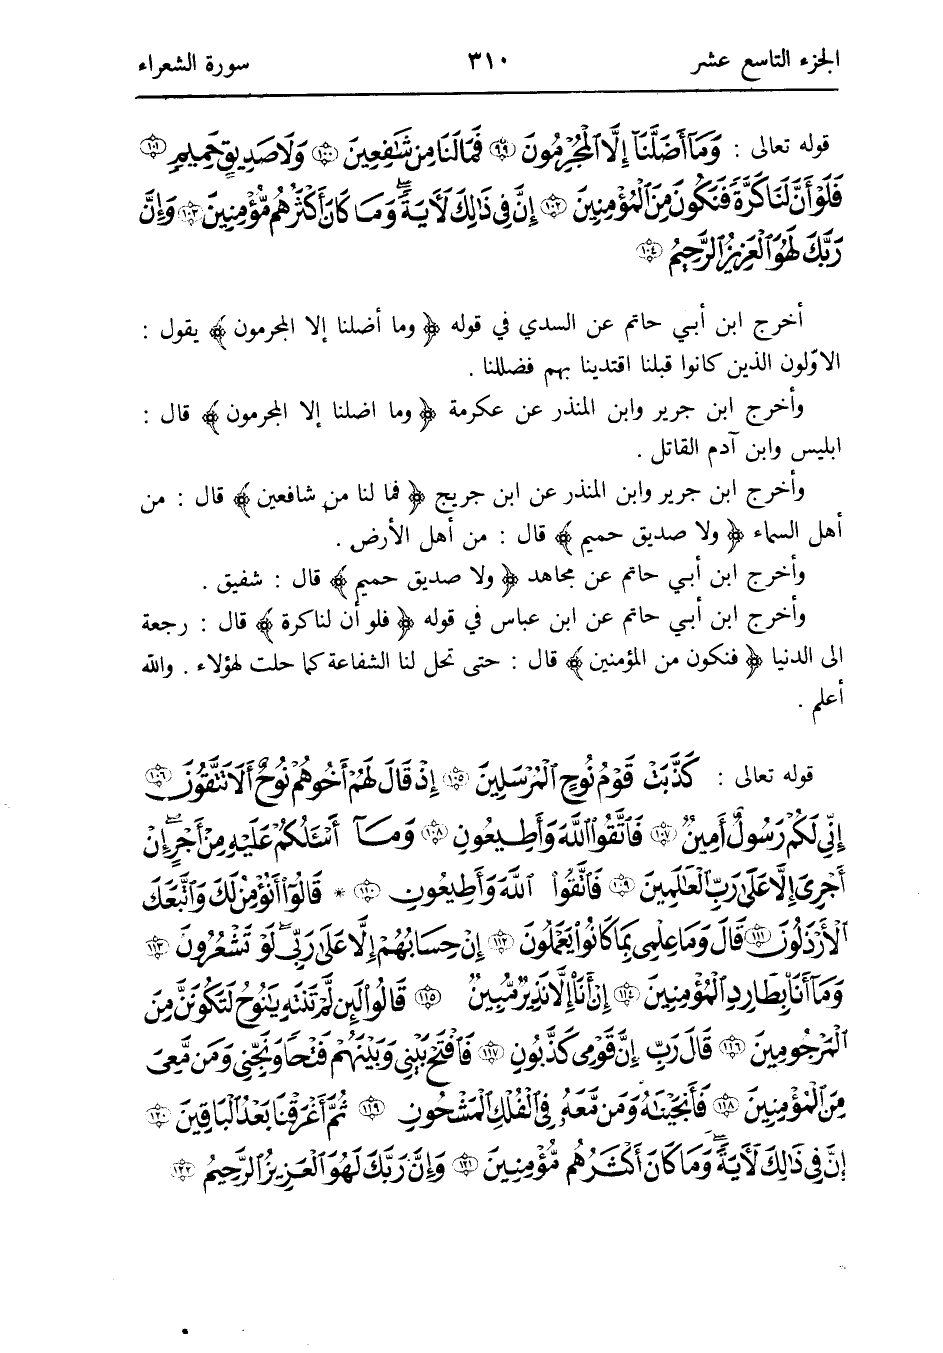 الجزء التاسع عشر ٣١٠ سورة الشعراء
قوله تعالى : وَمَآ أَضَلَّنَآ إِلَّا ٱلْمُجْرِمُونَ ﴿٩٩﴾ فَمَا لَنَا مِن شَٰفِعِينَ ﴿١٠٠﴾ وَلَا صَدِيقٍ حَمِيمٍ ﴿١٠١﴾
فَلَوْ أَنَّ لَنَا كَرَّةً فَنَكُونَ مِنَ ٱلْمُؤْمِنِينَ ﴿١٠٢﴾ إِنَّ فِى ذَٰلِكَ لَأٓيَةً ۖ وَمَا كَانَ أَكْثَرُهُم مُّؤْمِنِينَ ﴿١٠٣﴾ وَإِنَّ
رَبَّكَ لَهُوَ ٱلْعَزِيزُ ٱلرَّحِيمُ ﴿١٠٤﴾
أخرج ابن أبي حاتم عن السدي في قوله ﴿ وما أضلنا إلا المجرمون ﴾ يقول :
الاوّلون الذين كانوا قبلنا اقتدينا بهم فضللنا .
وأخرج ابن جرير وابن المنذر عن عكرمة ﴿ وما اضلنا إلا المجرمون ﴾ قال :
ابليس وابن آدم القاتل .
وأخرج ابن جرير وابن المنذر عن ابن جريج ﴿ فما لنا من شافعين ﴾ قال : من
أهل السماء ﴿ ولا صديق حميم ﴾ قال : من أهل الأرض .
وأخرج ابن أبي حاتم عن مجاهد ﴿ ولا صديق حميم ﴾ قال : شفيق .
وأخرج ابن أبي حاتم عن ابن عباس في قوله ﴿ فلو أن لنا كرة ﴾ قال : رجعة
الى الدنيا ﴿ فنكون من المؤمنين ﴾ قال : حتى تحل لنا الشفاعة كما حلت لهؤلاء . والله
أعلم .
قوله تعالى : كَذَّبَتْ قَوْمُ نُوحٍ ٱلْمُرْسَلِينَ ﴿١٠٥﴾ إِذْ قَالَ لَهُمْ أَخُوهُمْ نُوحٌ أَلَا تَتَّقُونَ ﴿١٠٦﴾
إِنِّى لَكُمْ رَسُولٌ أَمِينٌ ﴿١٠٧﴾ فَٱتَّقُوا۟ ٱللَّهَ وَأَطِيعُونِ ﴿١٠٨﴾ وَمَآ أَسْـَٔلُكُمْ عَلَيْهِ مِنْ أَجْرٍ ۖ إِنْ
أَجْرِىَ إِلَّا عَلَىٰ رَبِّ ٱلْعَٰلَمِينَ ﴿١٠٩﴾ فَٱتَّقُوا۟ ٱللَّهَ وَأَطِيعُونِ ﴿١١٠﴾ * قَالُوٓا۟ أَنُؤْمِنُ لَكَ وَٱتَّبَعَكَ
ٱلْأَرْذَلُونَ ﴿١١١﴾ قَالَ وَمَا عِلْمِى بِمَا كَانُوا۟ يَعْمَلُونَ ﴿١١٢﴾ إِنْ حِسَابُهُمْ إِلَّا عَلَىٰ رَبِّى ۖ لَوْ تَشْعُرُونَ ﴿١١٣﴾
وَمَآ أَنَا۠ بِطَارِدِ ٱلْمُؤْمِنِينَ ﴿١١٤﴾ إِنْ أَنَا۠ إِلَّا نَذِيرٌ مُّبِينٌ ﴿١١٥﴾ قَالُوا۟ لَئِن لَّمْ تَنتَهِ يَٰنُوحُ لَتَكُونَنَّ مِنَ
ٱلْمَرْجُومِينَ ﴿١١٦﴾ قَالَ رَبِّ إِنَّ قَوْمِى كَذَّبُونِ ﴿١١٧﴾ فَٱفْتَحْ بَيْنِى وَبَيْنَهُمْ فَتْحًا وَنَجِّنِى وَمَن مَّعِىَ
مِنَ ٱلْمُؤْمِنِينَ ﴿١١٨﴾ فَأَنجَيْنَٰهُ وَمَن مَّعَهُۥ فِى ٱلْفُلْكِ ٱلْمَشْحُونِ ﴿١١٩﴾ ثُمَّ أَغْرَقْنَا بَعْدُ ٱلْبَاقِينَ ﴿١٢٠﴾
إِنَّ فِى ذَٰلِكَ لَأٓيَةً ۖ وَمَا كَانَ أَكْثَرُهُم مُّؤْمِنِينَ ﴿١٢١﴾ وَإِنَّ رَبَّكَ لَهُوَ ٱلْعَزِيزُ ٱلرَّحِيمُ ﴿١٢٢﴾